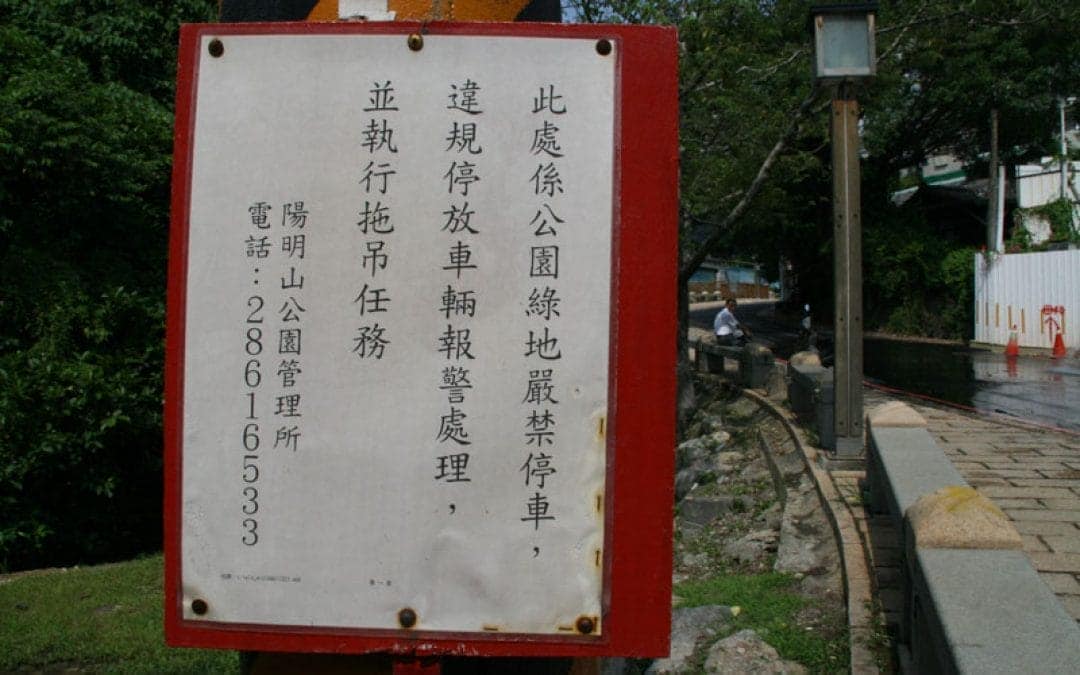 此處係公園綠地嚴禁停車，
違規停放車輛報警處理，
並執行拖吊任務
陽明山公園管理所
電話：28616533